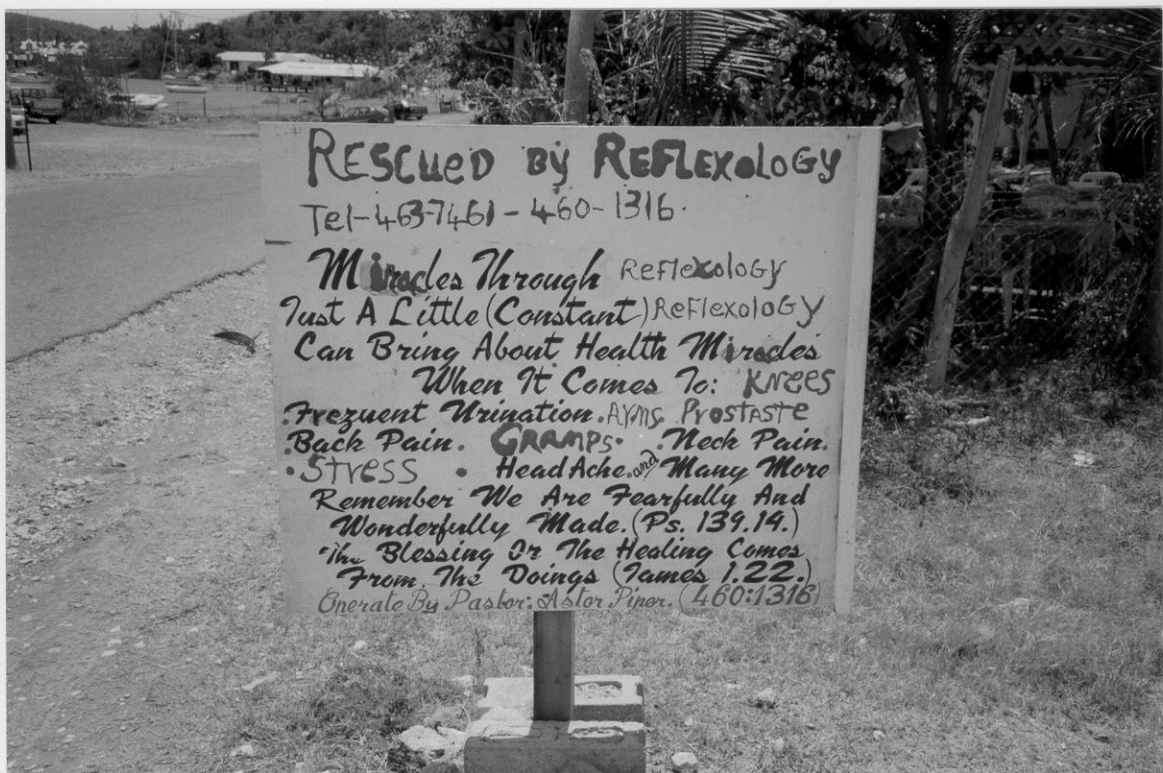 RESCUED By REFLEXOLOGY
Tel-463-7461-460-1316.
Miracles Through REFLEXOLOGY
Just A Little (Constant) REFLEXOLOGY
Can Bring About Health Miracles
When It Comes To: KNEES
.Frezuent Urination. Arms Prostaste
.Back Pain. GRAMPS. .Neck Pain.
.STRESS . Head Ache. and Many More
Remember We Are Fearfully And
Wonderfully Made. (Ps. 139.14.)
"The Blessing Or The Healing Comes
From The Doings (James 1.22.)
Operate By Pastor: Astor Piper. (460:1316)